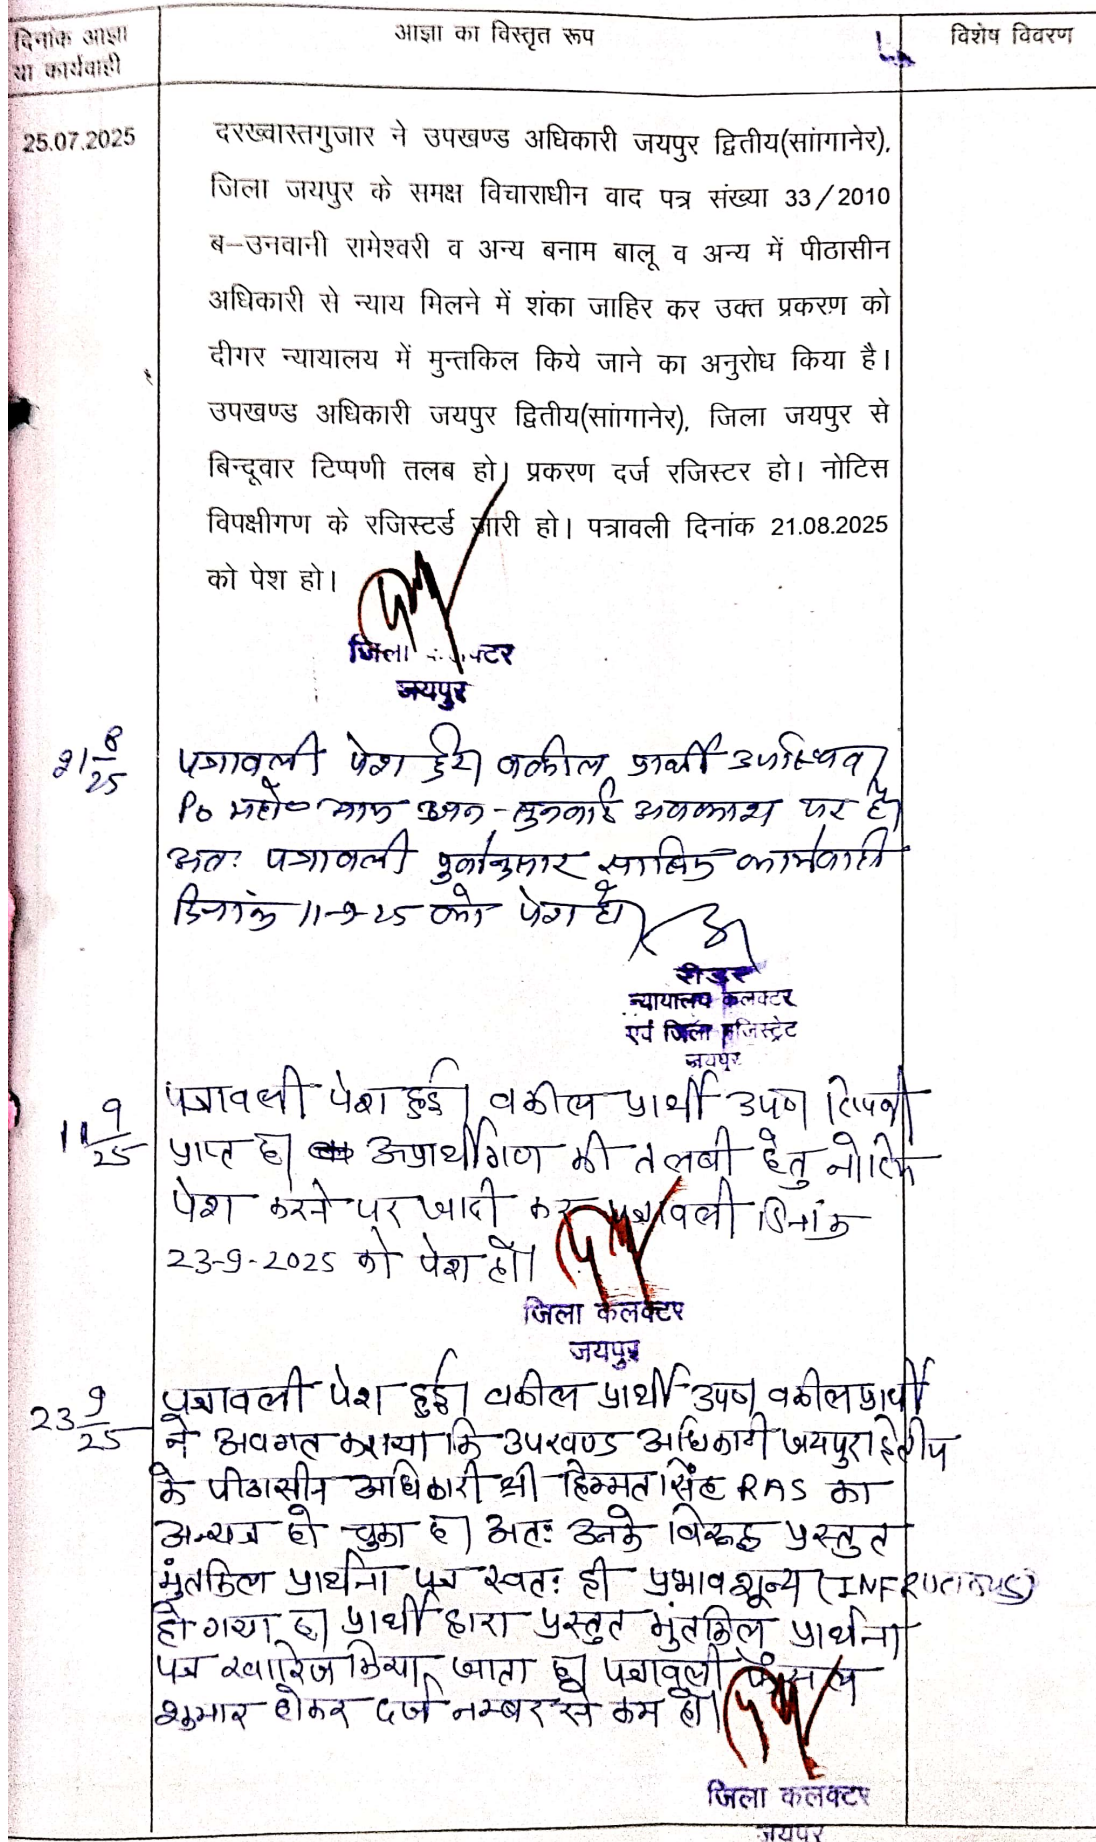 दिनांक आज्ञा
या कार्यवाही
आज्ञा का विस्तृत रूप
विशेष विवरण
25.07.2025
दरख्वास्तगुजार ने उपखण्ड अधिकारी जयपुर द्वितीय(सांगानेर),
जिला जयपुर के समक्ष विचाराधीन वाद पत्र संख्या 33/2010
ब–उनवानी रामेश्वरी व अन्य बनाम बालू व अन्य में पीठासीन
अधिकारी से न्याय मिलने में शंका जाहिर कर उक्त प्रकरण को
दीगर न्यायालय में मुन्तकिल किये जाने का अनुरोध किया है।
उपखण्ड अधिकारी जयपुर द्वितीय(सांगानेर), जिला जयपुर से
बिन्दूवार टिप्पणी तलब हो। प्रकरण दर्ज रजिस्टर हो। नोटिस
विपक्षीगण के रजिस्टर्ड जारी हो। पत्रावली दिनांक 21.08.2025
को पेश हो।
जिला
जयपुर
21 8/25
पत्रावली पेश हुई। वकील प्रार्थी उपस्थित।
PO महो० जन-सुनवाई अवकाश पर है।
अतः पत्रावली पूर्वानुसार साबिक कार्यवाही
दिनांक 11-9-25 को पेश हो।
रीडर
न्यायालय कलक्टर
एवं जिला मजिस्ट्रेट
जयपुर
11 9/25
पत्रावली पेश हुई। वकील प्रार्थी उप०। टिप्पणी
प्राप्त है। अप्रार्थीगण की तलबी हेतु नोटिस
पेश करने पर जारी कर पत्रावली दिनांक
23-9-2025 को पेश हो।
जिला कलक्टर
जयपुर
23 9/25
पत्रावली पेश हुई। वकील प्रार्थी उप०। वकील प्रार्थी
ने अवगत कराया कि उपखण्ड अधिकारी जयपुर द्वितीय
के पीठासीन अधिकारी श्री हिम्मत सिंह RAS का
अन्यत्र हो चुका है। अतः उनके विरूद्ध प्रस्तुत
मुंतकिल प्रार्थना पत्र स्वतः ही प्रभाव शून्य (INFRUCTUOUS)
हो गया है। प्रार्थी द्वारा प्रस्तुत मुंतकिल प्रार्थना
पत्र खारिज किया जाता है। पत्रावली फैसल
शुमार होकर दर्ज नम्बर से कम हो।
जिला कलक्टर
जयपुर